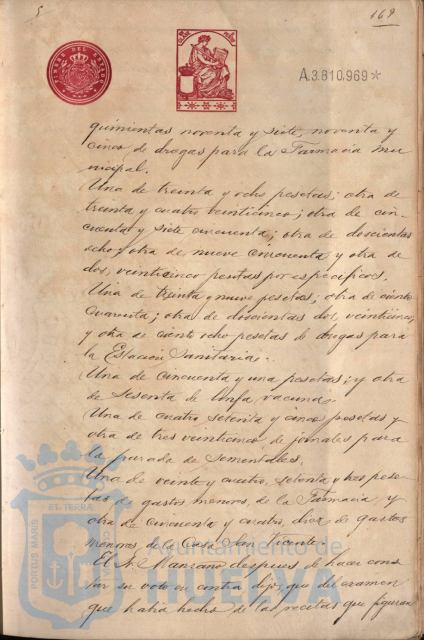 5
169
TIMBRE DEL ESTADO
A.3.810.969*
quinientas noventa y siete, noventa y
cinco de drogas para la Farmacia mu
nicipal.
Una de treinta y ocho pesetas; otra de
treinta y cuatro veinticinco; otra de cin-
cuenta y siete cincuenta; otra de doscientas
ocho y otra de nueve cincuenta y otra de
dos, veinticinco pesetas por específicos.
Una de treinta y nueve pesetas; otra de ciento
cuarenta; otra de doscientas dos, veinticinco,
y otra de ciento ocho pesetas de drogas para
la Estación Sanitaria.-
Una de cincuenta y una pesetas; y otra
de sesenta de linfa vacuna.-
Una de cuatro setenta y cinco pesetas y
otra de tres veinticinco de jornales para
la parada de Sementales.
Una de veinte y cuatro, setenta y tres pese-
tas de gastos menores de la Farmacia y
otra de cincuenta y cuatro, diez de gastos
menores de la Casa San Vicente.-
El Sr. Manzano despues de hacer cons
tar su voto en contra dijo; que del examen
que habia hecho de las recetas que figuran
Ayuntamiento de
HUELVA
PORTUS MARIS
ET TERRÆ